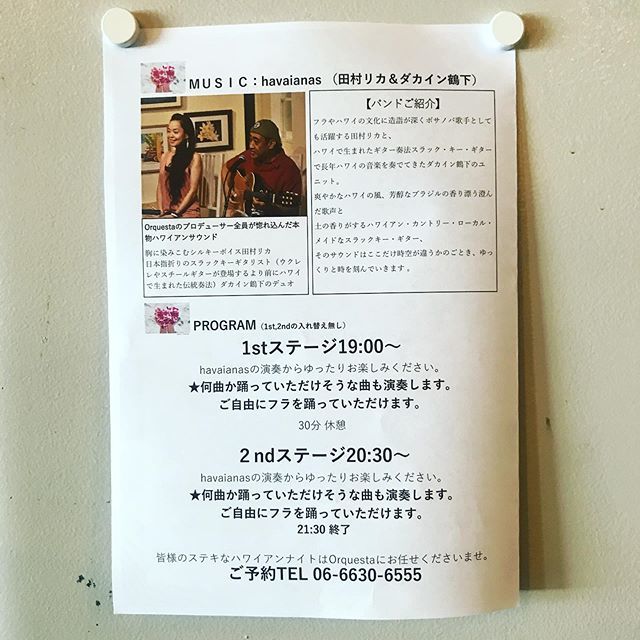 MUSIC：havaianas （田村リカ＆ダカイン鶴下）
【バンドご紹介】
フラやハワイの文化に造詣が深くボサノバ歌手として
も活躍する田村リカと、
ハワイで生まれたギター奏法スラック・キー・ギター
で長年ハワイの音楽を奏でてきたダカイン鶴下のユ
ニット。
爽やかなハワイの風、芳醇なブラジルの香り漂う澄ん
だ歌声と
土の香りがするハワイアン・カントリー・ローカル・
メイドなスラックキー・ギター、
そのサウンドはここだけ時空が違うかのごとき、ゆっ
くりと時を刻んでいきます。
Orquestaのプロデューサー全員が惚れ込んだ本
物ハワイアンサウンド
胸に染みこむシルキーボイス田村リカ
日本指折りのスラックキーギタリスト（ウクレ
レやスチールギターが登場するより前にハワイ
で生まれた伝統奏法）ダカイン鶴下のデュオ
PROGRAM（1st,2ndの入れ替え無し）
1stステージ19:00～
havaianasの演奏からゆったりお楽しみください。
★何曲か踊っていただけそうな曲も演奏します。
ご自由にフラを踊っていただけます。
30分 休憩
２ndステージ20:30～
havaianasの演奏からゆったりお楽しみください。
★何曲か踊っていただけそうな曲も演奏します。
ご自由にフラを踊っていただけます。
21:30 終了
皆様のステキなハワイアンナイトはOrquestaにお任せくださいませ。
ご予約TEL 06-6630-6555